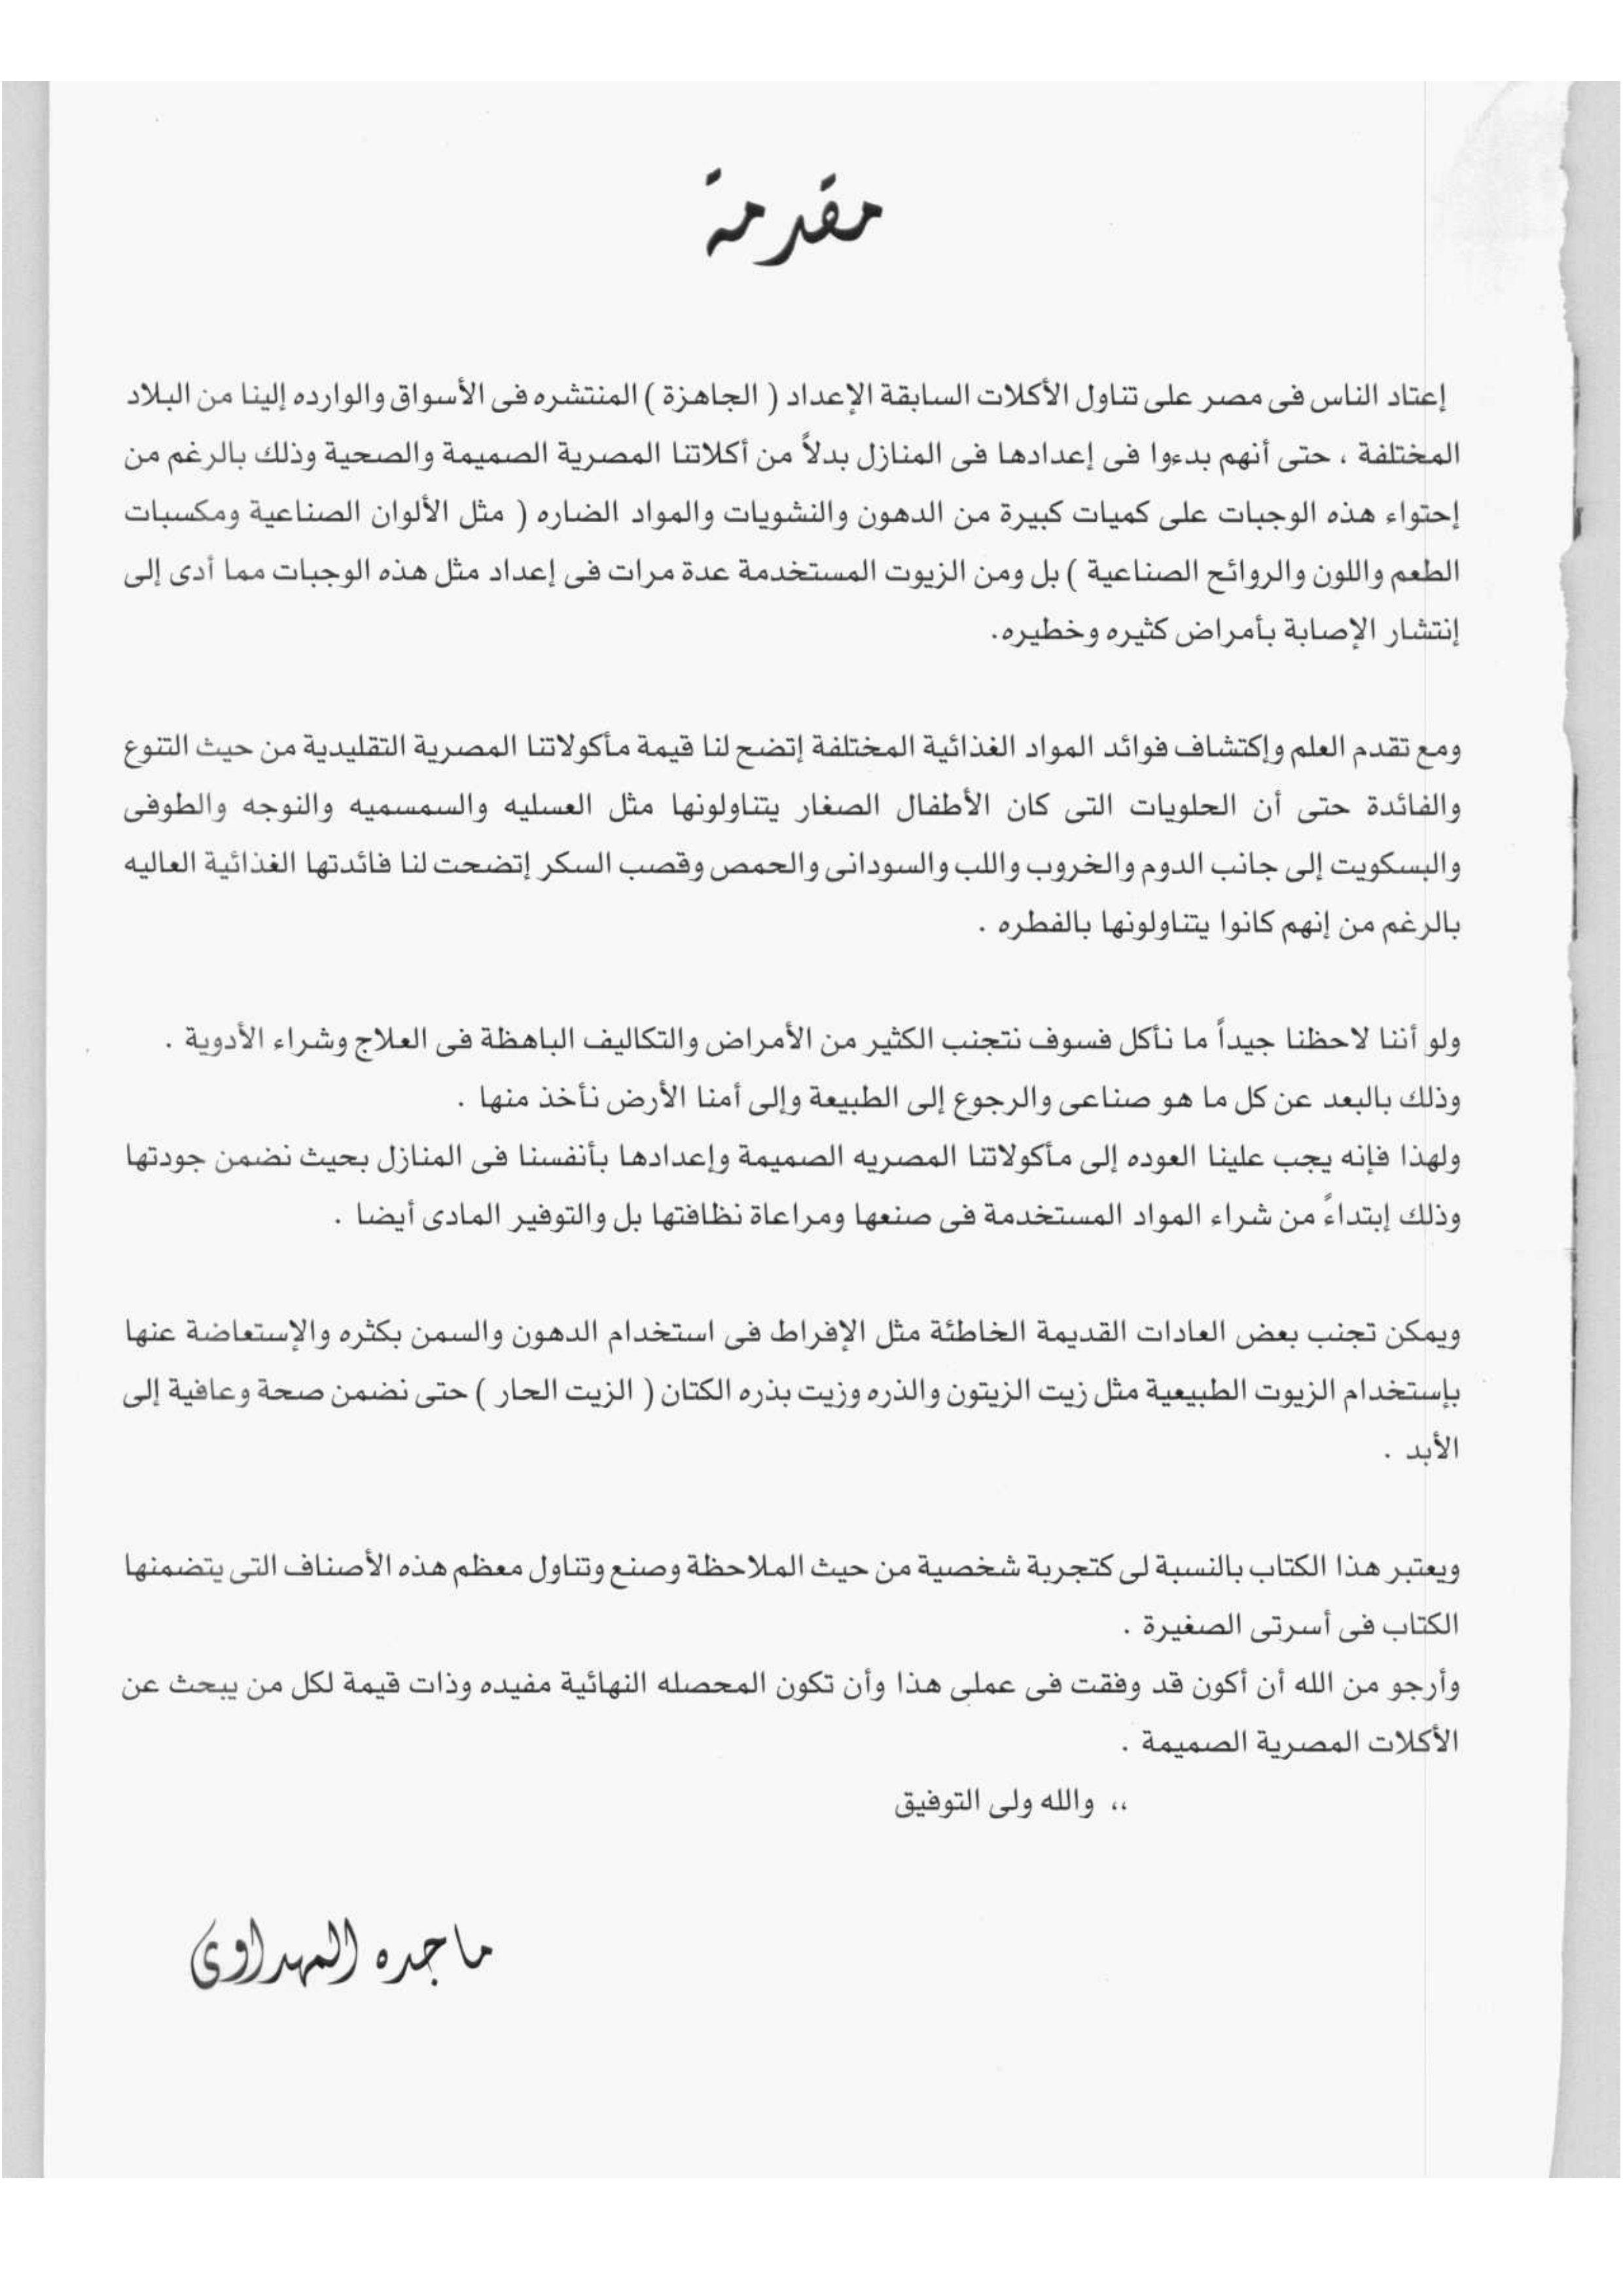 مقدمة
إعتاد الناس فى مصر على تناول الأكلات السابقة الإعداد ( الجاهزة ) المنتشره فى الأسواق والوارده إلينا من البلاد
المختلفة ، حتى أنهم بدءوا فى إعدادها فى المنازل بدلاً من أكلاتنا المصرية الصميمة والصحية وذلك بالرغم من
إحتواء هذه الوجبات على كميات كبيرة من الدهون والنشويات والمواد الضاره ( مثل الألوان الصناعية ومكسبات
الطعم واللون والروائح الصناعية ) بل ومن الزيوت المستخدمة عدة مرات فى إعداد مثل هذه الوجبات مما أدى إلى
إنتشار الإصابة بأمراض كثيره وخطيره.
ومع تقدم العلم وإكتشاف فوائد المواد الغذائية المختلفة إتضح لنا قيمة مأكولاتنا المصرية التقليدية من حيث التنوع
والفائدة حتى أن الحلويات التى كان الأطفال الصغار يتناولونها مثل العسليه والسمسميه والنوجه والطوفى
والبسكويت إلى جانب الدوم والخروب واللب والسودانى والحمص وقصب السكر إتضحت لنا فائدتها الغذائية العاليه
بالرغم من إنهم كانوا يتناولونها بالفطره .
ولو أننا لاحظنا جيداً ما نأكل فسوف نتجنب الكثير من الأمراض والتكاليف الباهظة فى العلاج وشراء الأدوية .
وذلك بالبعد عن كل ما هو صناعى والرجوع إلى الطبيعة وإلى أمنا الأرض نأخذ منها .
ولهذا فإنه يجب علينا العوده إلى مأكولاتنا المصريه الصميمة وإعدادها بأنفسنا فى المنازل بحيث نضمن جودتها
وذلك إبتداءً من شراء المواد المستخدمة فى صنعها ومراعاة نظافتها بل والتوفير المادى أيضا .
ويمكن تجنب بعض العادات القديمة الخاطئة مثل الإفراط فى استخدام الدهون والسمن بكثره والإستعاضة عنها
بإستخدام الزيوت الطبيعية مثل زيت الزيتون والذره وزيت بذره الكتان ( الزيت الحار ) حتى نضمن صحة وعافية إلى
الأبد .
ويعتبر هذا الكتاب بالنسبة لى كتجربة شخصية من حيث الملاحظة وصنع وتناول معظم هذه الأصناف التى يتضمنها
الكتاب فى أسرتى الصغيرة .
وأرجو من الله أن أكون قد وفقت فى عملى هذا وأن تكون المحصله النهائية مفيده وذات قيمة لكل من يبحث عن
الأكلات المصرية الصميمة .
،، والله ولى التوفيق
ماجده المهداوى